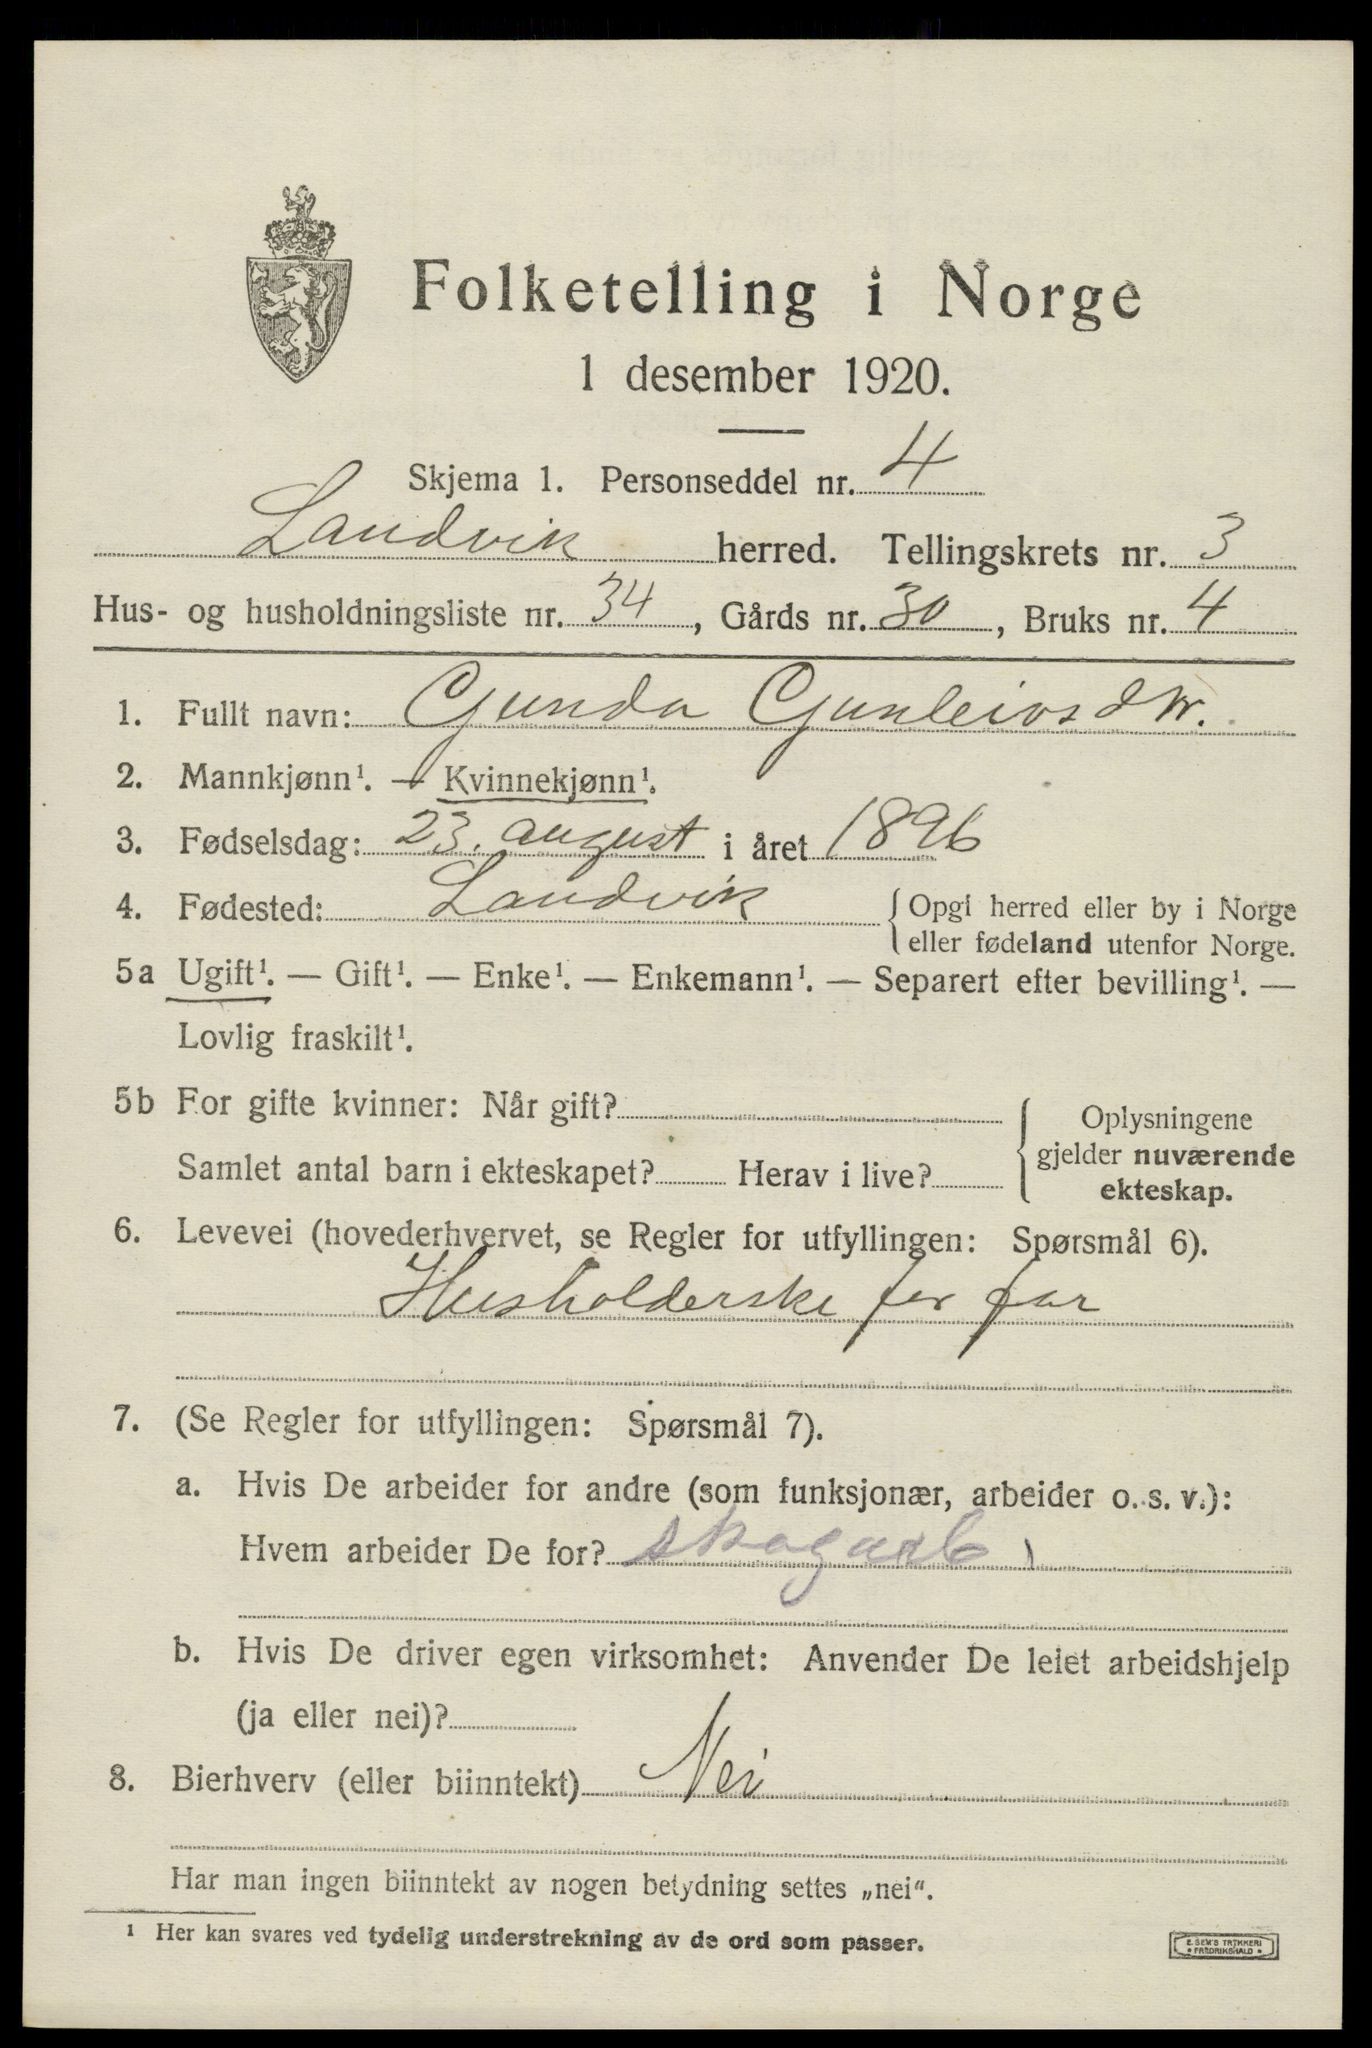 Folketelling i Norge
1 desember 1920.
Skjema 1. Personseddel nr. 4
Landvik herred. Tellingskrets nr. 3
Hus- og husholdningsliste nr. 34, Gårds nr. 30, Bruks nr. 4
1. Fullt navn: Gunda Gunleivsdtr.
2. Mannkjønn¹. — Kvinnekjønn¹.
3. Fødselsdag: 23. august i året 1896
4. Fødested: Landvik { Opgi herred eller by i Norge
eller fødeland utenfor Norge.
5a Ugift¹. — Gift¹. — Enke¹. — Enkemann¹. — Separert efter bevilling¹. —
Lovlig fraskilt¹.
5b For gifte kvinner: Når gift?
Samlet antal barn i ekteskapet? Herav i live?
{ Oplysningene
gjelder nuværende
ekteskap.
6. Levevei (hovederhvervet, se Regler for utfyllingen: Spørsmål 6).
Husholderske for far
7. (Se Regler for utfyllingen: Spørsmål 7).
a. Hvis De arbeider for andre (som funksjonær, arbeider o. s. v.):
Hvem arbeider De for? skogarb
b. Hvis De driver egen virksomhet: Anvender De leiet arbeidshjelp
(ja eller nei)?
8. Bierhverv (eller biinntekt) Nei
Har man ingen biinntekt av nogen betydning settes „nei".
¹ Her kan svares ved tydelig understrekning av de ord som passer.
E. SEM'S TRYKKERI
* FREDRIKSHALD *